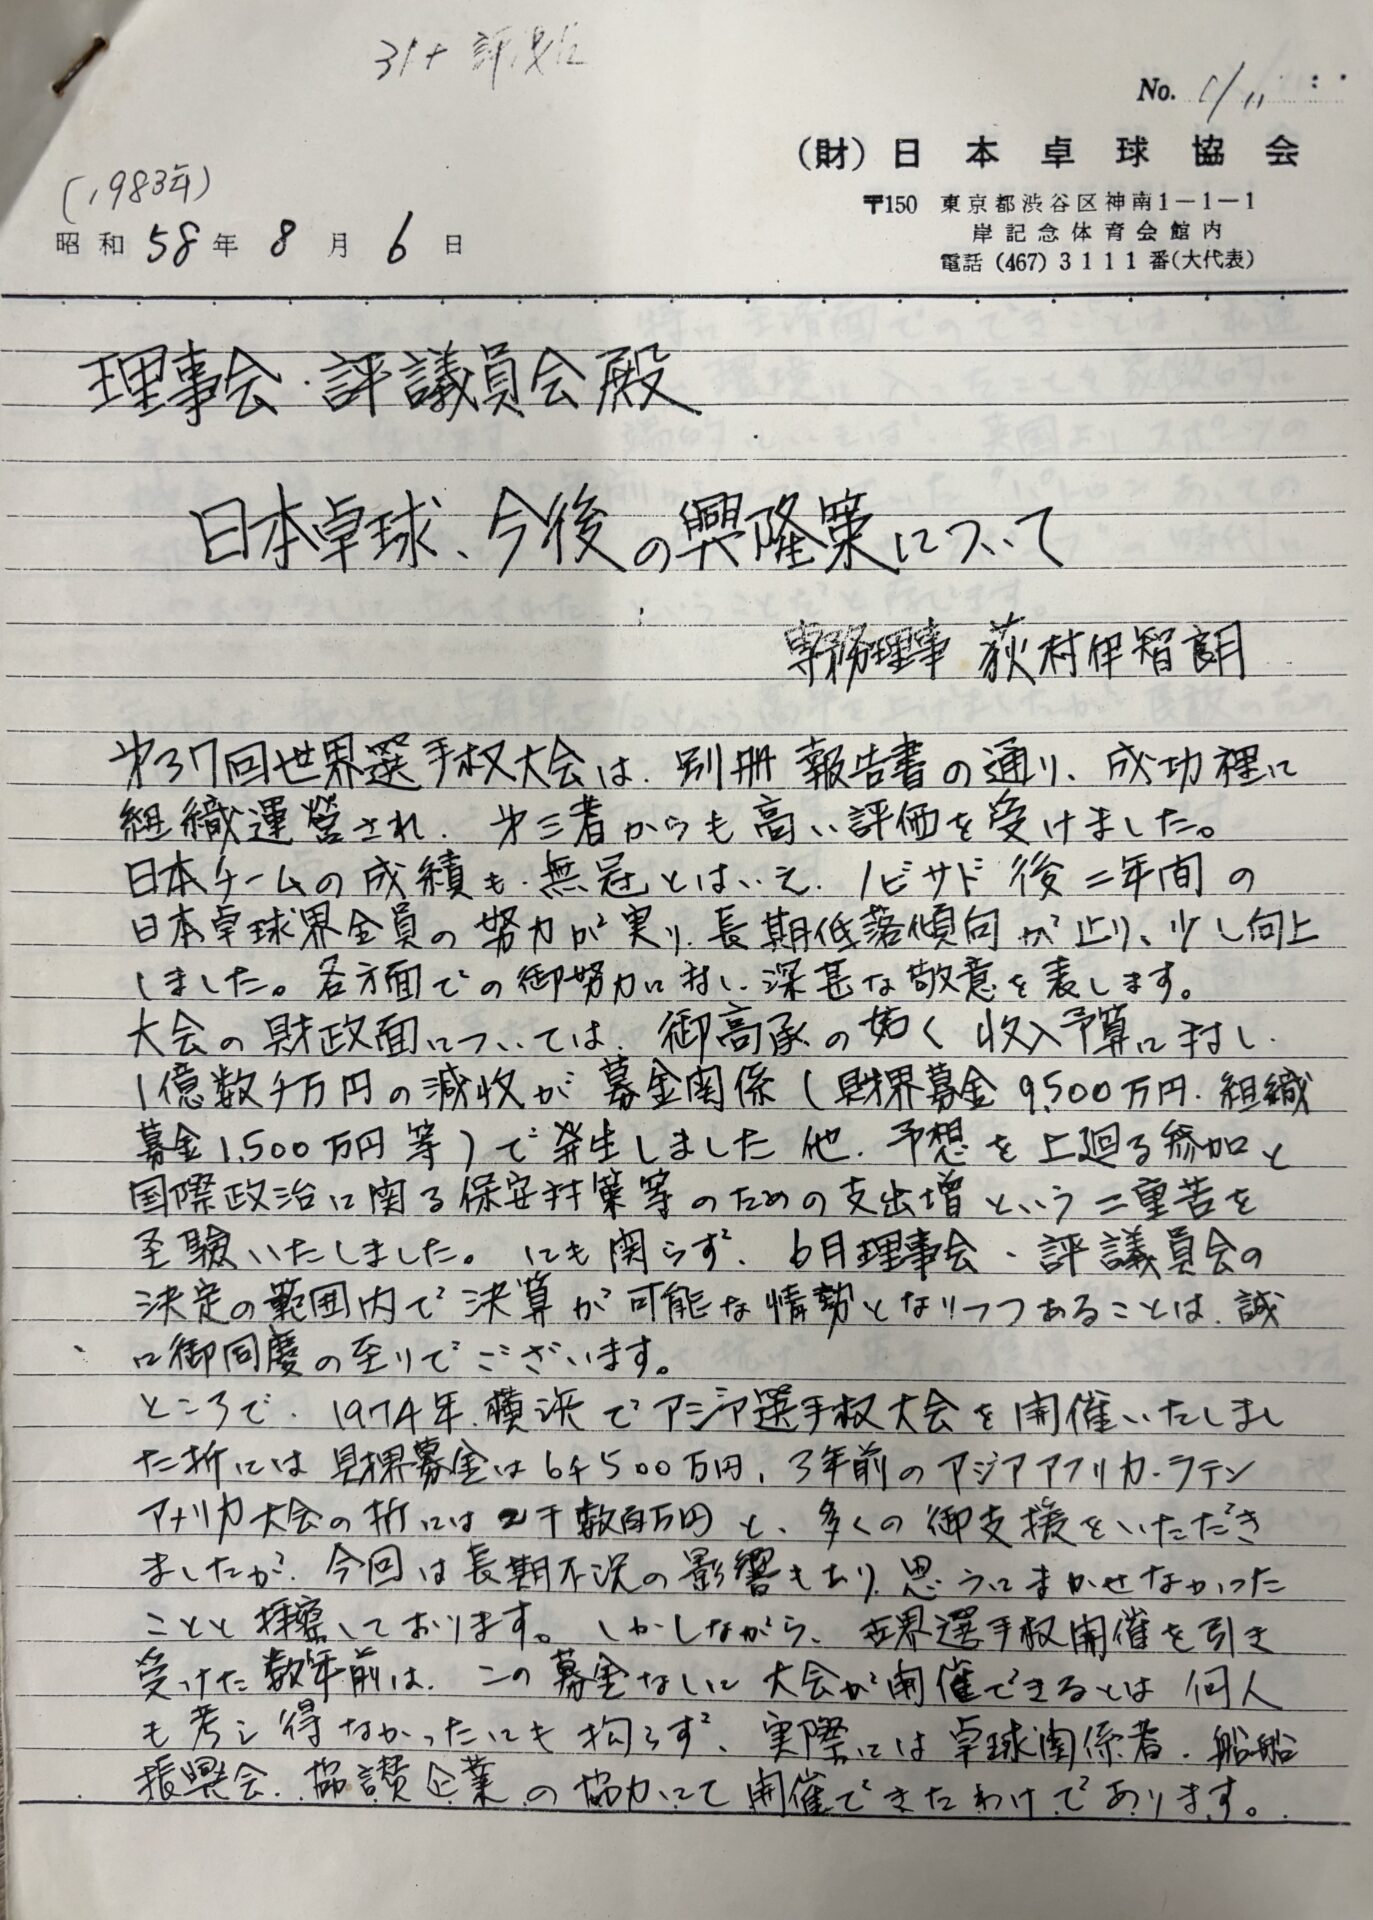 No. 1/11
(財)日本卓球協会
〒150 東京都渋谷区神南1-1-1
岸記念体育会館内
電話(467)3111番(大代表)
(1983年)
昭和58年8月6日
理事会・評議員会殿
日本卓球、今後の興隆策について
専務理事 荻村伊智朗
才37回世界選手权大会は、別冊報告書の通り、成功裡に
組織運営され、才三者からも高い評価を受けました。
日本チームの成績も、無冠とはいえ、ノビサド後二年間の
日本卓球界全員の努力が実り、長期低落傾向が止り、少し向上
しました。各方面での御努力に対し深甚な敬意を表します。
大会の財政面については、御高承の如く収入予算に対し、
1億数千万円の減収が募金関係(財界募金9,500万円、組織
募金1,500万円等)で発生しました他、予想を上廻る参加と
国際政治に関る保安対策等のための支出増という二重苦を
経験いたしました。にも関らず、6月理事会・評議員会の
決定の範囲内で決算が可能な情勢となりつつあることは、誠
に御同慶の至りでございます。
ところで、1974年、横浜でアジア選手权大会を開催いたしまし
た折には財界募金は6千500万円、3年前のアジアアフリカ・ラテン
アメリカ大会の折には2千数百万円と、多くの御支援をいただき
ましたが、今回は長期不況の影響もあり、思うにまかせなかった
ことと拝察しております。しかしながら、世界選手权開催を引き
受けた数年前は、この募金なしに大会が開催できるとは何人
も考え得なかったにも拘らず、実際には卓球関係者、船舶
振興会、協賛企業の協力にて開催できたわけであります。